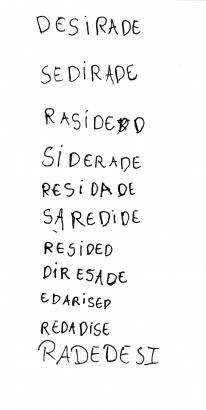 DESIRADE
SEDIRADE
RASIDED
SIDERADE
RESIDADE
SAREDIDE
RESIDED
DIRESADE
EDARISED
REDADISE
RADEDESI